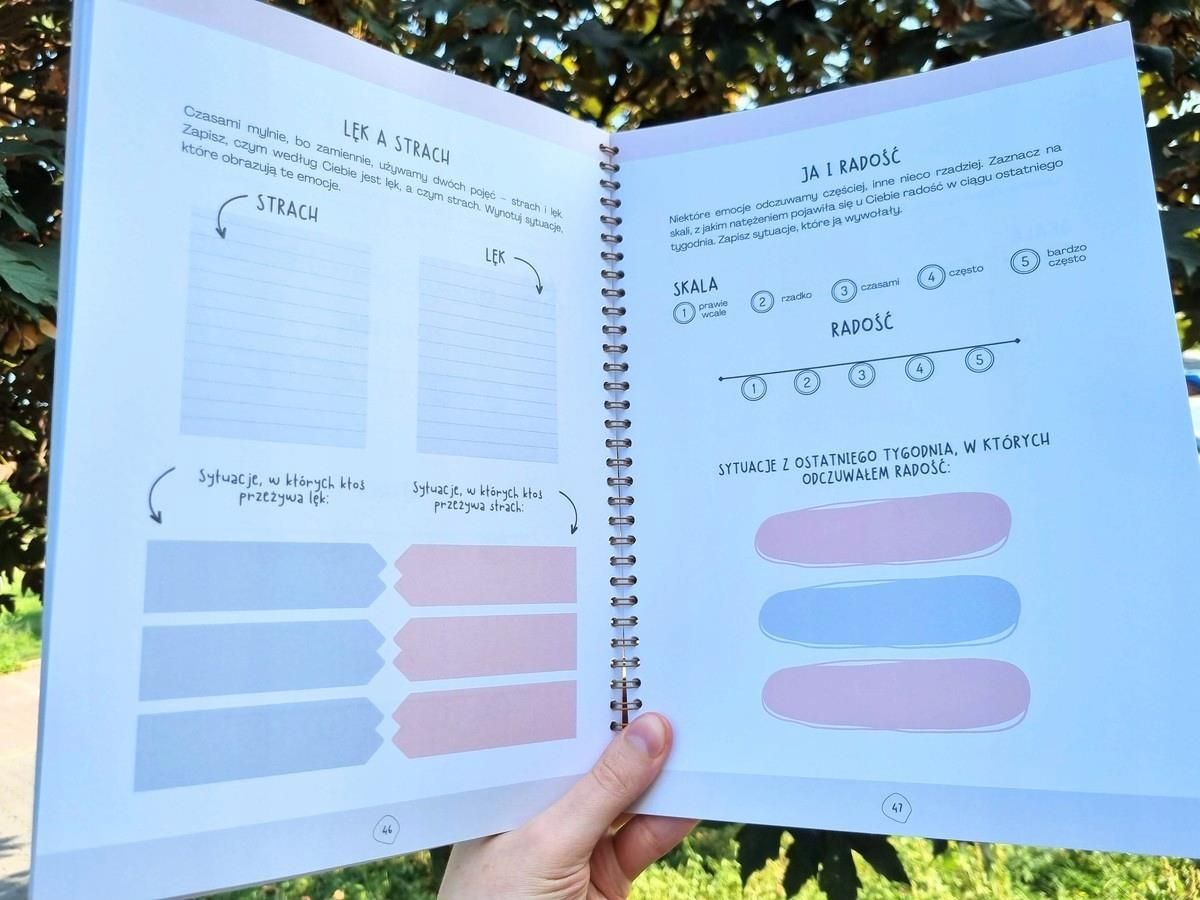 LĘK A STRACH
Czasami mylnie, bo zamiennie, używamy dwóch pojęć – strach i lęk.
Zapisz, czym według Ciebie jest lęk, a czym strach. Wynotuj sytuacje,
które obrazują te emocje.
STRACH
LĘK
Sytuacje, w których ktoś
przeżywa lęk:
Sytuacje, w których ktoś
przeżywa strach:
46
JA I RADOŚĆ
Niektóre emocje odczuwamy częściej, inne nieco rzadziej. Zaznacz na
skali, z jakim natężeniem pojawiła się u Ciebie radość w ciągu ostatniego
tygodnia. Zapisz sytuacje, które ją wywołały.
SKALA
1 prawie
wcale
2 rzadko
3 czasami
4 często
5 bardzo
często
RADOŚĆ
1 2 3 4 5
SYTUACJE Z OSTATNIEGO TYGODNIA, W KTÓRYCH
ODCZUWAŁEM RADOŚĆ:
47